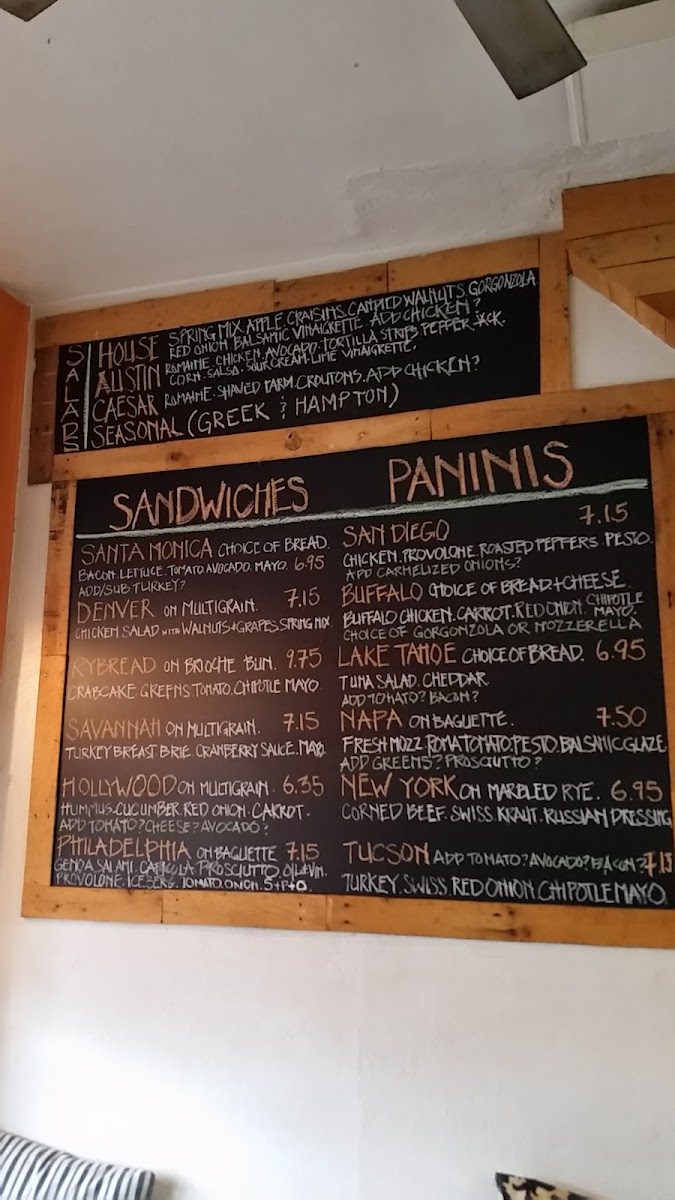 SALADS
HOUSE SPRING MIX. APPLE. CRAISINS. CANDIED WALNUTS. GORGONZOLA
RED ONION. BALSAMIC VINAIGRETTE. ADD CHICKEN?
AUSTIN ROMAINE. CHICKEN. AVOCADO. TORTILLA STRIPS. PEPPER JACK.
CORN-SALSA. SOUR CREAM. LIME VINAIGRETTE.
CAESAR ROMAINE. SHAVED PARM. CROUTONS. ADD CHICKEN?
SEASONAL (GREEK & HAMPTON)
SANDWICHES
SANTA MONICA CHOICE OF BREAD.
BACON. LETTUCE. TOMATO. AVOCADO. MAYO. 6.95
ADD/SUB TURKEY?
DENVER ON MULTIGRAIN. 7.15
CHICKEN SALAD WITH WALNUTS + GRAPES. SPRING MIX
RYBREAD ON BRIOCHE BUN. 9.75
CRABCAKE. GREENS. TOMATO. CHIPOTLE MAYO
SAVANNAH ON MULTIGRAIN. 7.15
TURKEY BREAST. BRIE. CRANBERRY SAUCE. MAYO.
HOLLYWOOD ON MULTIGRAIN. 6.35
HUMMUS. CUCUMBER. RED ONION. CARROT.
ADD TOMATO? CHEESE? AVOCADO?
PHILADELPHIA ON BAGUETTE 7.15
GENOA SALAMI. CAPICOLA. PROSCIUTTO. OIL + VIN.
PROVOLONE. ICEBERG. TOMATO. ONION. S+P+O.
PANINIS
SAN DIEGO 7.15
CHICKEN. PROVOLONE. ROASTED PEPPERS. PESTO.
ADD CARMELIZED ONIONS?
BUFFALO CHOICE OF BREAD + CHEESE.
BUFFALO CHICKEN. CARROT. RED ONION. CHIPOTLE MAYO.
CHOICE OF GORGONZOLA OR MOZZERELLA
LAKE TAHOE CHOICE OF BREAD. 6.95
TUNA SALAD. CHEDDAR.
ADD TOMATO? BACON?
NAPA ON BAGUETTE. 7.50
FRESH MOZZ. ROMA TOMATO. PESTO. BALSAMIC GLAZE
ADD GREENS? PROSCIUTTO?
NEW YORK ON MARBLED RYE. 6.95
CORNED BEEF. SWISS. KRAUT. RUSSIAN DRESSING
TUCSON ADD TOMATO? AVOCADO? BACON? 7.15
TURKEY. SWISS. RED ONION. CHIPOTLE MAYO